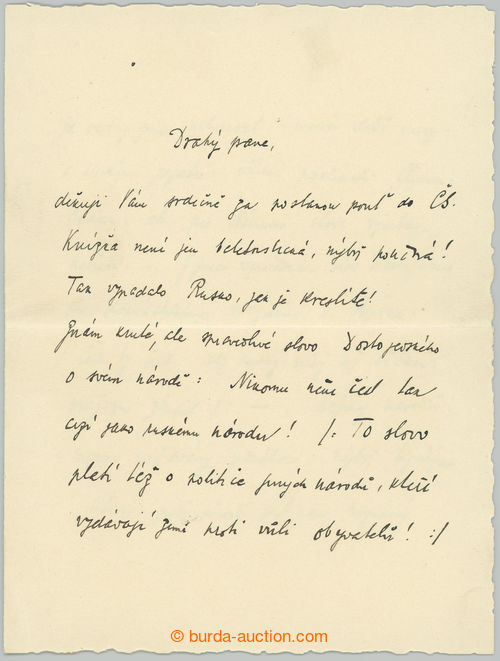 Drahý pane,
děkuji Vám srdečně za poslanou pouť do Čs.
Knížka není jen beletristická, nýbrž poučná!
Tak vypadalo Rusko, jak je kreslíte!
Znám kruté, ale spravedlivé slovo Dostojevského
o svém národě: Nikomu není čest tak
cizí jako ruskému národu! /: To slovo
platí též o politice jiných národů, kteří
vydávají země proti vůli obyvatelů! :/
© burda-auction.com